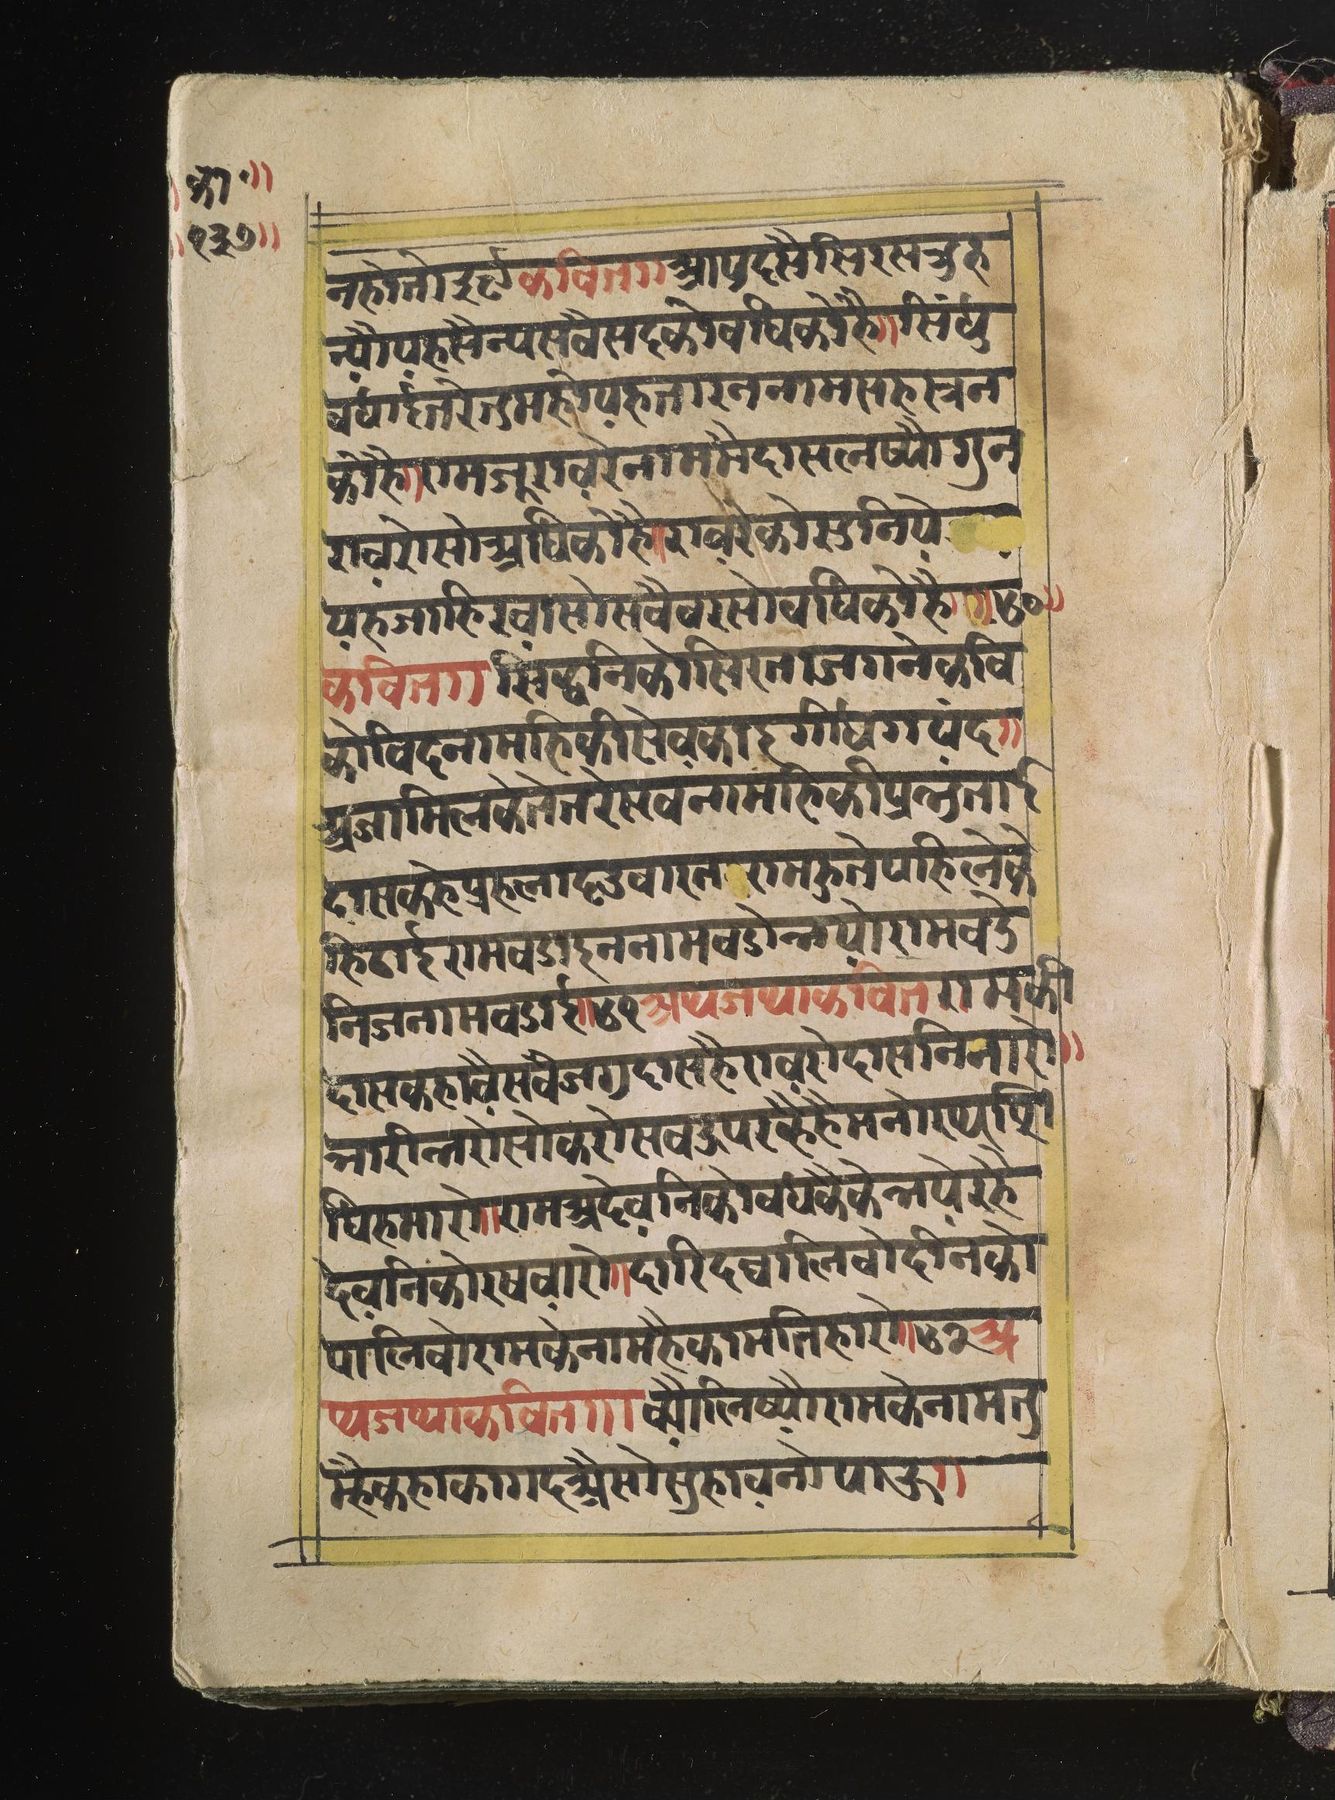 ॥का॰॥
॥१३७॥
नहोतोइ ३९ कवित॥ आपुदसैसिरसत्रुह
न्यौपहसैन्यसवैसदकोवधिकोहै॥सिंधु
वंधाइतरेतुमहोपहतारननामसहस्त्रन
कोहै॥रामजूरावरेनाममैदासलष्यौगुन
रावरोसोअधिकोहै॥रावरेकोसउनिपे
पहजाहिरवासोसवैवरसोवधिकोहै॥४०॥
कवित॥ सिद्धनिकोसिरताजगनेकवि
कोविदनामहिकीसेवकाइगीधगयंद॥
अजामिलकेतेतरेसवनामहिकीप्रभुताइ
दासकहेप्रहलादउवारतरामहुतेपहिलेके
हिठाइरामवडाइननामवडोभयोरामवडे
निजनामवडाई॥४१अथजथाकवितरामकी
दासकहावैसवैजगदासहैरावरोदासनिनारो॥
भारीभरोसोकरोसवऊपरकैहैमनोरथप्रि
घिहमारो॥रामअदेवनिकोवधकैकेभपेरहै
देवनिकोरषवारो॥दारिदघालिवोदीनको
पालिवोरामकेनामहैकामतिहारो॥४२अ
थजथाकवित॥ क्यौंलिष्यौरामकेनामतु
म्हैकहाकागदअैसोसुहावनोपाऊ॥